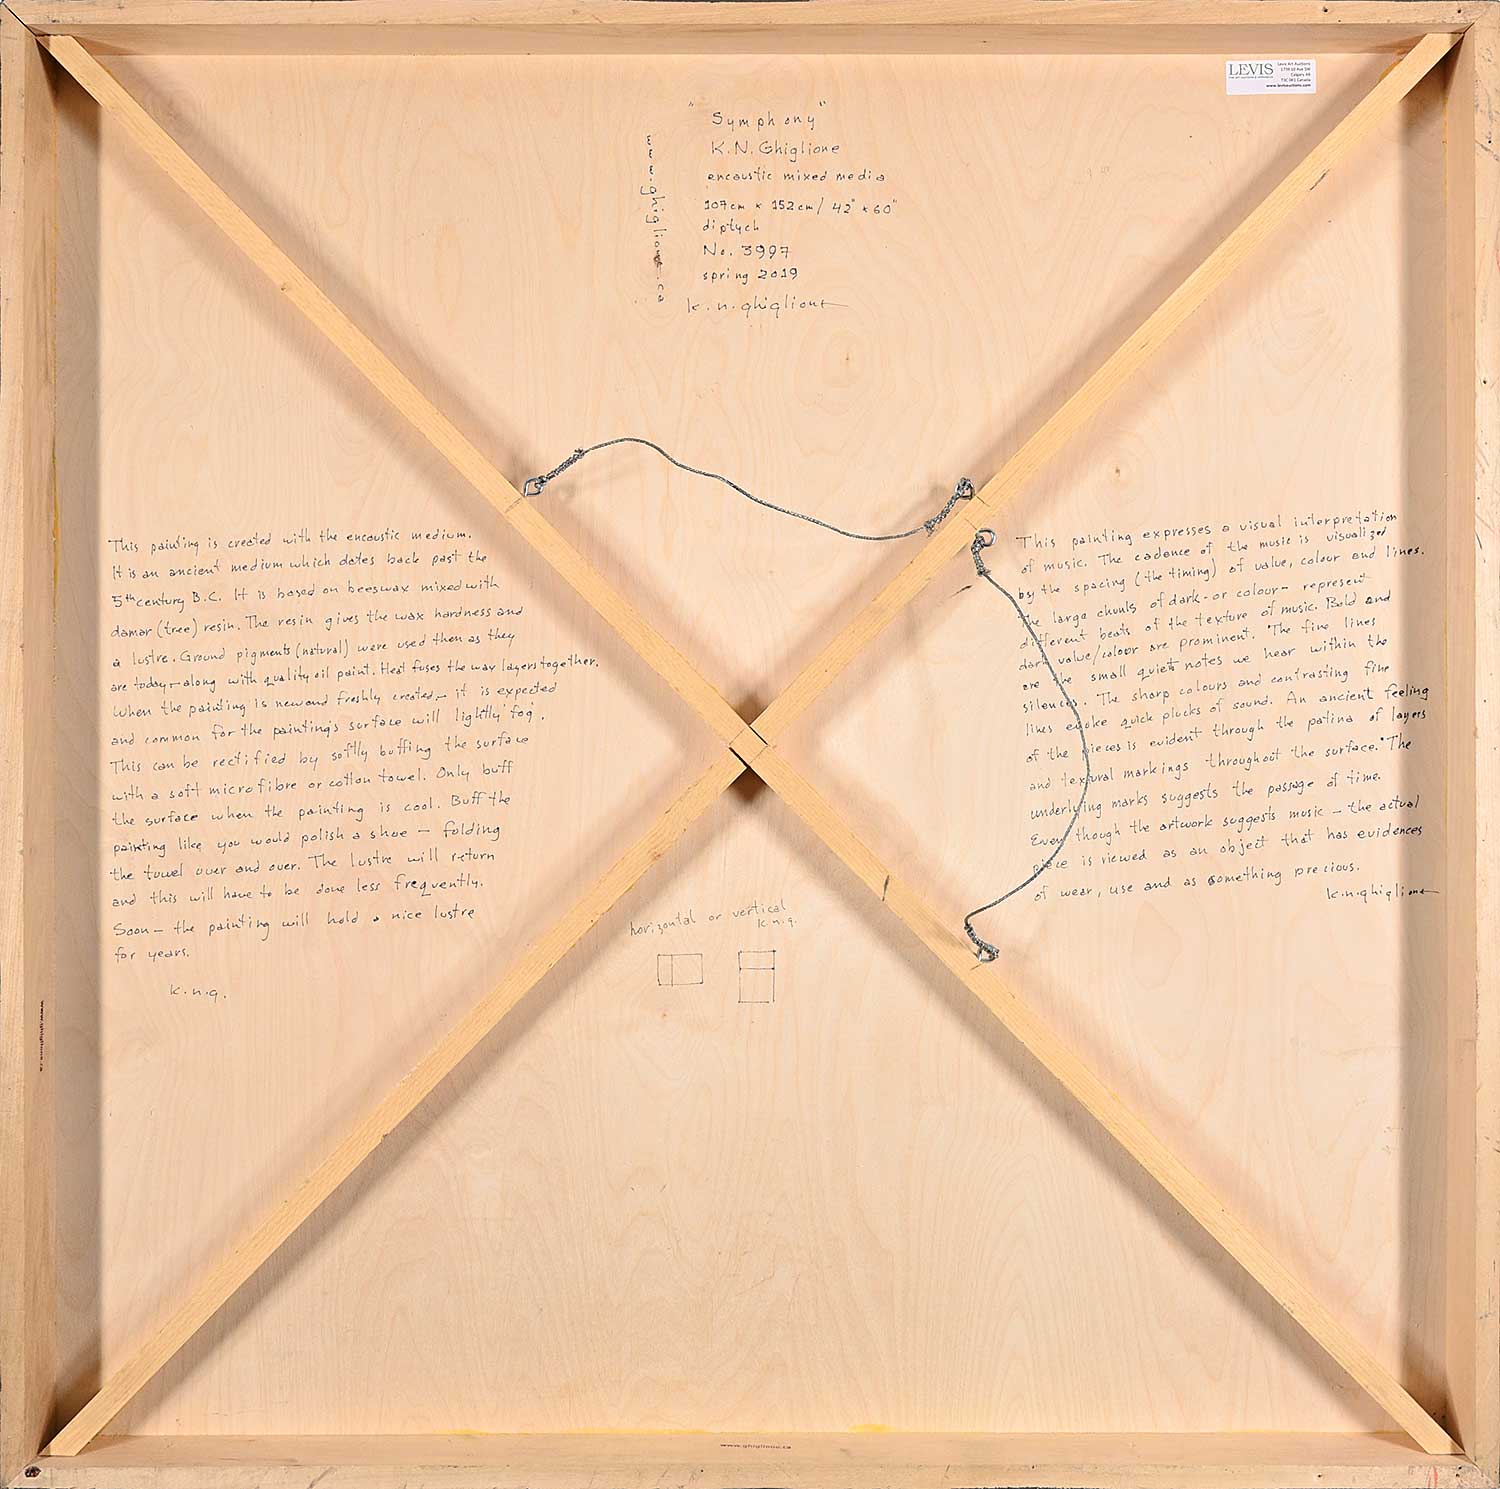 LEVIS
Levis Art Auctions
1739 10 Ave SW
Calgary AB
T3C 0K1 Canada
www.levisauctions.com
"Symphony"
K.N. Ghiglione
encaustic mixed media
107cm x 152cm / 42" x 60"
diptych
No. 3997
spring 2019
k.n.ghiglione
www.ghiglione.ca
This painting is created with the encaustic medium.
It is an ancient medium which dates back past the
5th century B.C. It is based on beeswax mixed with
damar (tree) resin. The resin gives the wax hardness and
a lustre. Ground pigments (natural) were used then as they
are today – along with quality oil paint. Heat fuses the wax layers together.
When the painting is new and freshly created – it is expected
and common for the painting's surface will lightly 'fog'.
This can be rectified by softly buffing the surface
with a soft microfibre or cotton towel. Only buff
the surface when the painting is cool. Buff the
painting like you would polish a shoe – folding
the towel over and over. The lustre will return
and this will have to be done less frequently.
Soon – the painting will hold a nice lustre
for years.
k.n.g.
This painting expresses a visual interpretation
of music. The cadence of the music is visualized
by the spacing (the timing) of value, colour and lines.
The large chunks of dark - or colour - represent
different beats of the texture of music. Bold and
dark value/colour are prominent. The fine lines
are the small quiet notes we hear within the
silences. The sharp colours and contrasting fine
lines evoke quick plucks of sound. An ancient feeling
of the pieces is evident through the patina of layers
and textural markings throughout the surface. The
underlying marks suggests the passage of time.
Even though the artwork suggests music – the actual
piece is viewed as an object that has evidences
of wear, use and as something precious.
k.n.ghiglione
horizontal or vertical
k.n.g.
www.ghiglione.ca
www.ghiglione.ca